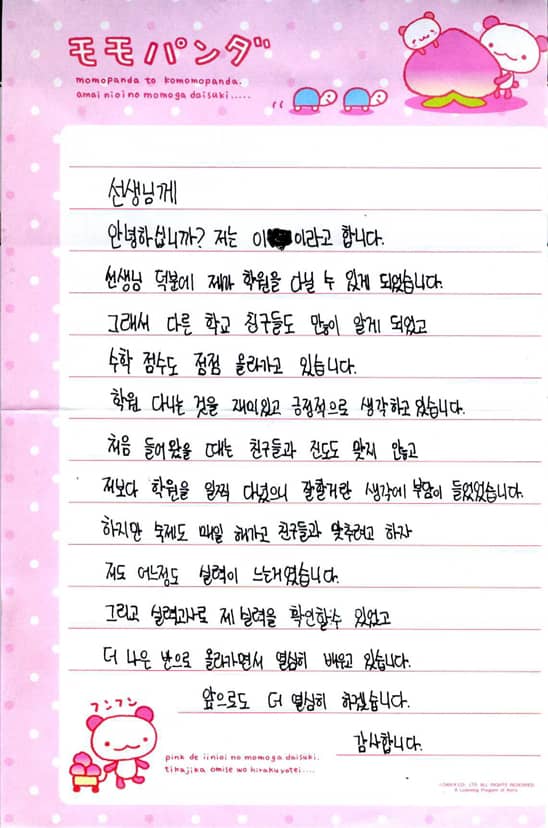 モモパンダ
momopanda to komomopanda.
amai nioi no momoga daisuki.....
선생님께
안녕하십니까? 저는 이 이라고 합니다.
선생님 덕분에 제가 학원을 다닐 수 있게 되었습니다.
그래서 다른 학교 친구들도 많이 알게 되었고
수학 점수도 점점 올라가고 있습니다.
학원 다니는 것을 재미있고 긍정적으로 생각하고 있습니다.
처음 들어왔을 때는 친구들과 진도도 맞지 않고
저보다 학원을 일찍 다녔으니 잘할거란 생각에 부담이 들었었습니다.
하지만 숙제도 매일 해가고 친구들과 맞추려고 하자
저도 어느정도 실력이 느는거였습니다.
그리고 실력고사로 제 실력을 확인할수 있었고
더 나은 반으로 올라가면서 열심히 배우고 있습니다.
앞으로도 더 열심히 하겠습니다.
감사합니다.
フンフン
pink de iinioi no momoga daisuki.
tikajika omise wo hirakuyotei....